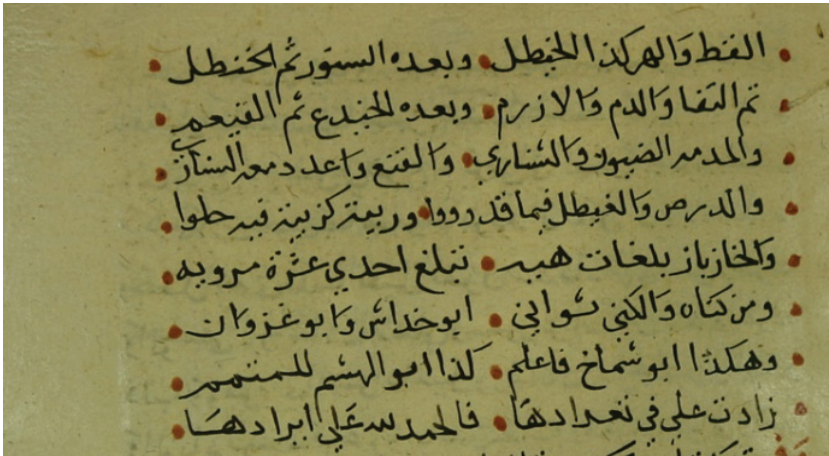 القط والهر كذا الخيطل وبعده السنور ثم الخنطل
ثم التفا والدم والازرم وبعده الخيدع ثم القيعم
والمدمه الضيون والشناري والقنع واعدد معه السنأز
والدرص والغيطل فيما قد رووا وربية كزبية فيه حلوا
والخازباز بلغات هيه تبلغ احدي عشرة مرويه
ومن كناه والكني تواني ابو خداش وابو غزوان
وهكذا ابو شماخ فاعلم كذا ابو الهيثم للمتمم
زادت علي في تعدادها فالحمد لله علي ايرادها